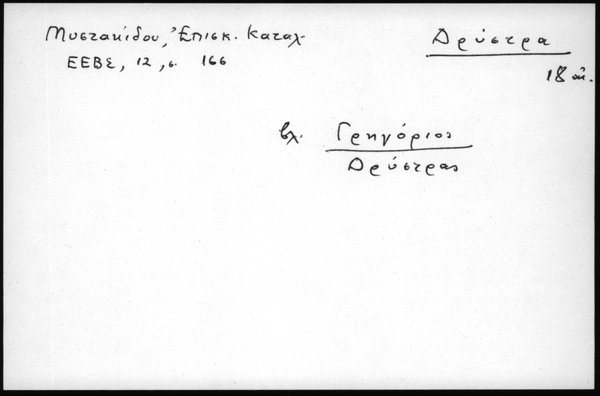 Μυστακίδου, Ἐπισκ. Καταλ.
ΕΕΒΣ, 12, σ. 166
Δρύστρα
18 αι.
βλ. Γρηγόριος
Δρύστρας